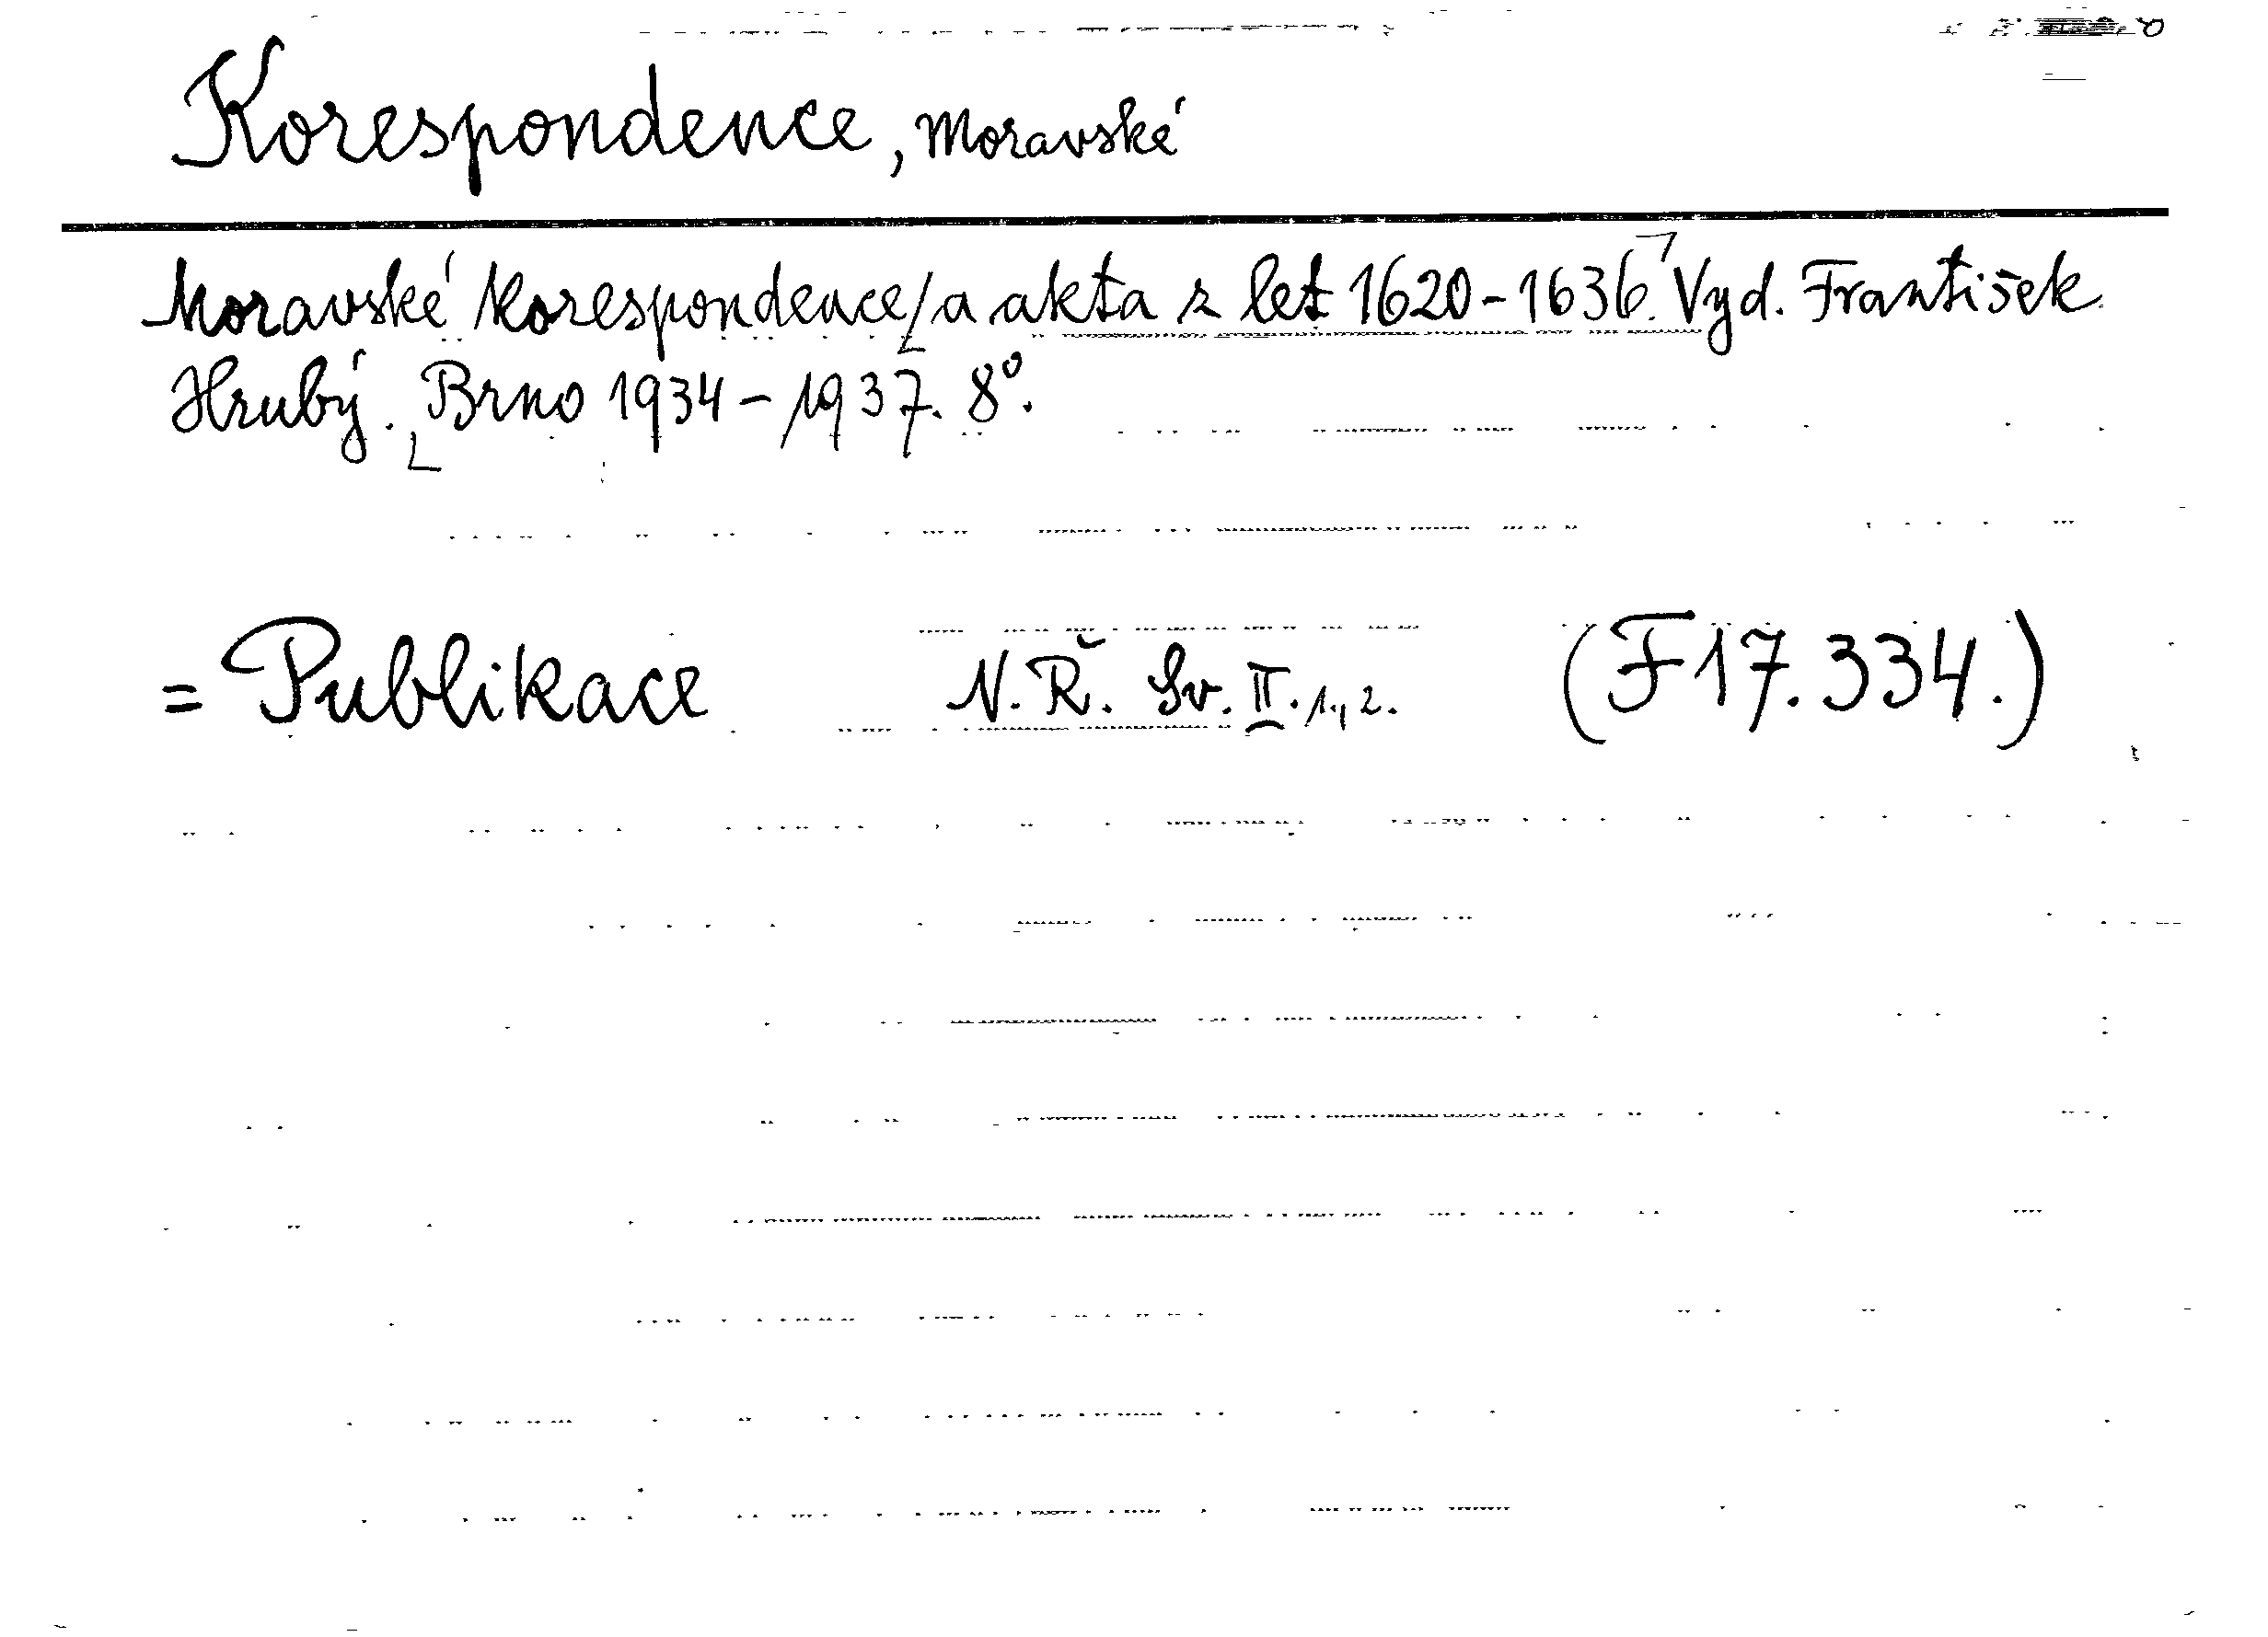 Korespondence, Moravské
Moravské korespondence a akta z let 1620-1636. Vyd. František
Hrubý. Brno 1934-1937. 8°.
= Publikace N. Ř. Sv. II. 1., 2. (F17.334.)